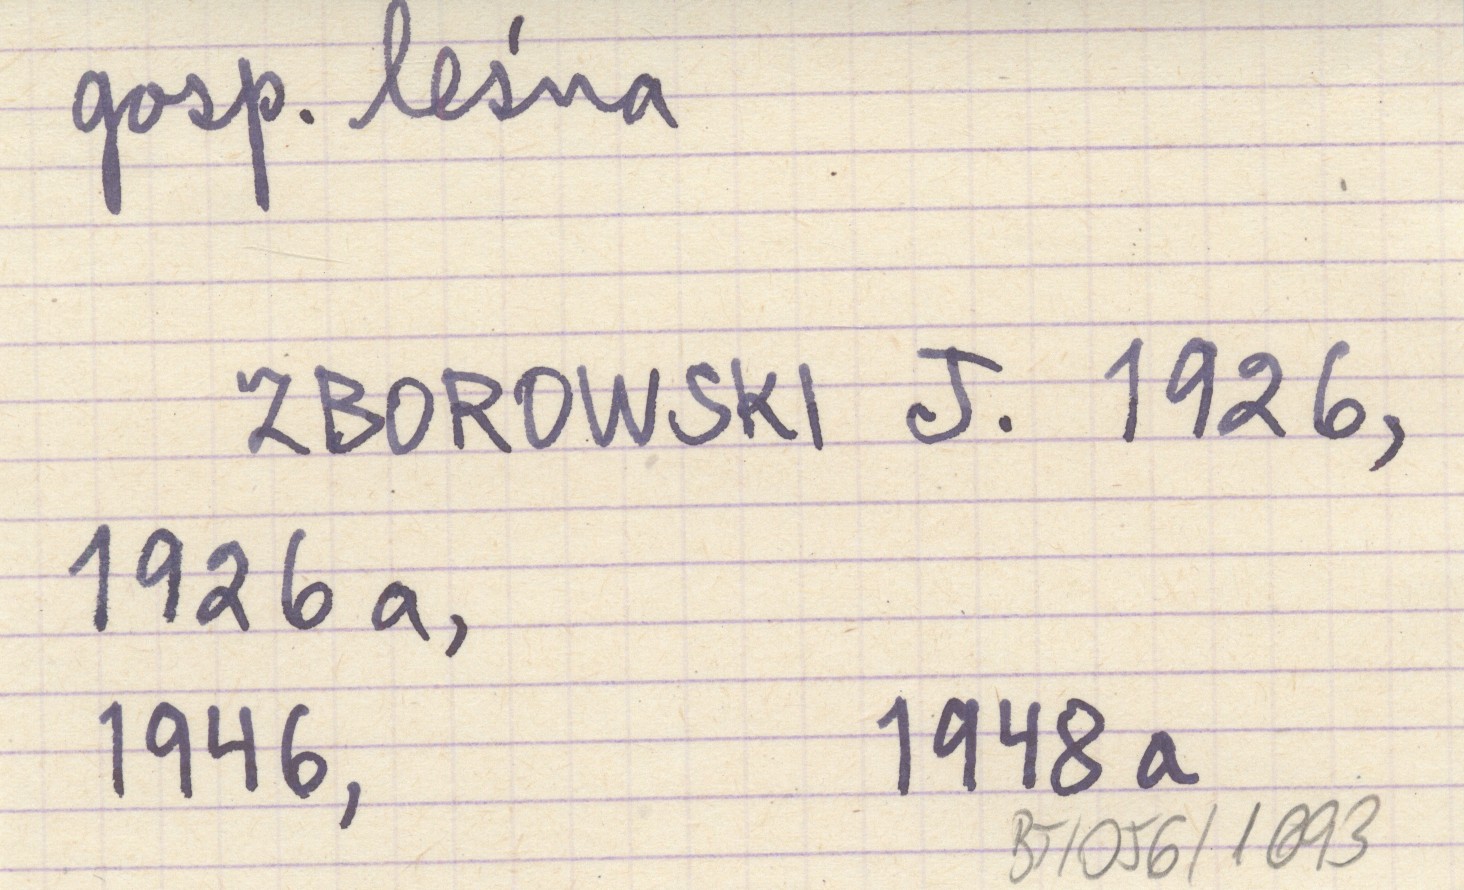 gosp. leśna
ZBOROWSKI J. 1926,
1926 a,
1946, 1948 a
BJ/OJG/1093